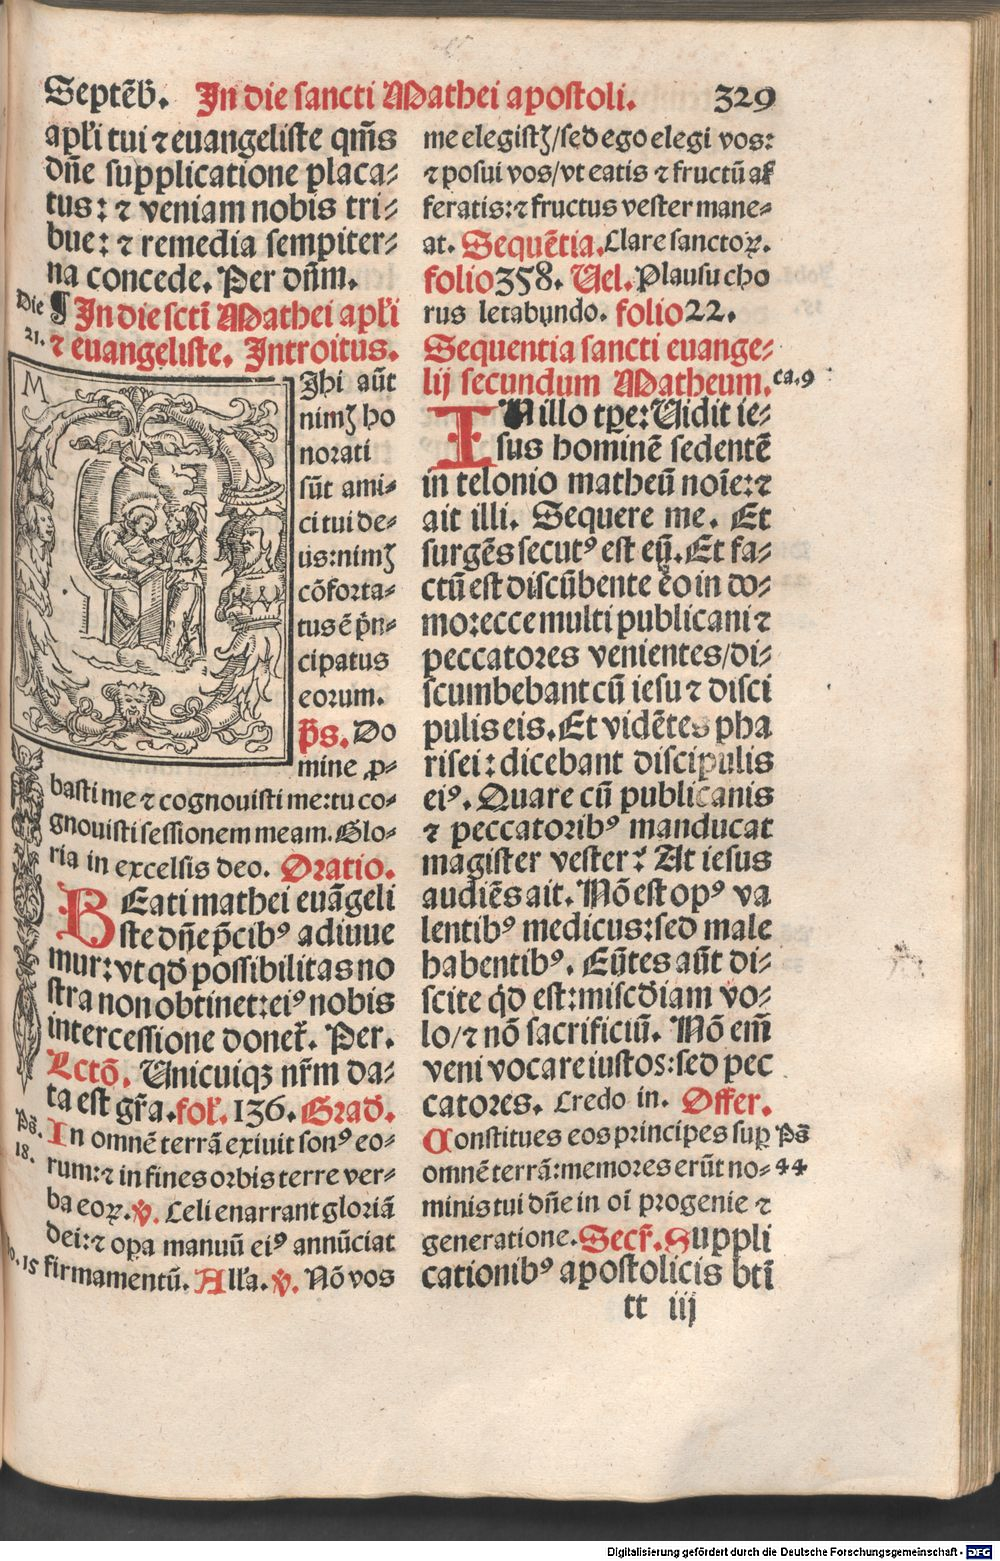 Septēb̄. In die sancti Mathei apostoli. 329
apl̓i tui ⁊ euangeliste qm̄s
dn̄e supplicatione placa⸗
tus: ⁊ veniam nobis tri⸗
bue: ⁊ remedia sempiter⸗
na concede. Per dn̄m.
Die 21.
¶ In die scti Mathei apl̓i
⁊ euangeliste. Introitus.
M
Ihi aūt
nimꝫ ho
norati
sūt ami⸗
ci tui de⸗
us: nimꝫ
cōforta⸗
tus ē p̄n⸗
cipatus
eorum.
p̄s. Do
mine ꝓ⸗
basti me ⁊ cognouisti me: tu co⸗
gnouisti sessionem meam. Glo⸗
ria in excelsis deo. Oratio.
BEati mathei euāgeli
ste dn̄e p̄cibꝰ adiuue
mur: vt qd̄ possibilitas no
stra non obtinet: eiꝰ nobis
intercessione donet᷑. Per.
Lctō. Unicuiqꝫ nr̄m da⸗
ta est gr̄a. fol̓. 136. Grad̄.
Ps̄. 18.
In omnē terrā exiuit sonꝰ eo⸗
rum: ⁊ in fines orbis terre ver⸗
ba eoꝝ. ℣. Celi enarrant gloriā
dei: ⁊ oꝑa manuū eiꝰ annūciat
o. 15
firmamentū. All̓a. ℣. Nō vos
me elegistꝫ/sed ego elegi vos:
⁊ posui vos/vt eatis ⁊ fructū af
feratis: ⁊ fructus vester mane⸗
at. Sequētia. Clare sanctoꝝ.
folio 358. Uel. Plausu cho
rus letabundo. folio 22.
Sequentia sancti euange⸗
lij secundum Matheum. ca. 9
IN illo tꝑe: Uidit ie⸗
sus hominē sedentē
in telonio matheū noīe: ⁊
ait illi. Sequere me. Et
surgēs secutꝰ est eū. Et fa⸗
ctū est discūbente eo in do⸗
mo: ecce multi publicani ⁊
peccatores venientes/di⸗
scumbebant cū iesu ⁊ disci
pulis eis. Et vidētes pha
risei: dicebant discipulis
eiꝰ. Quare cū publicanis
⁊ peccatoribꝰ manducat
magister vester? At iesus
audiēs ait. Nō est opꝰ va
lentibꝰ medicus: sed male
habentibꝰ. Eūtes aūt di⸗
scite qd̓ est: misc̄diam vo⸗
lo/⁊ nō sacrificiū. Nō em̄
veni vocare iustos: sed pec
catores. Credo in. Offer.
Constitues eos principes suꝑ Ps̄
omnē terrā: memores erūt no⸗ 44
minis tui dn̄e in oī progenie ⁊
generatione. Secr̄. Suppli
cationibꝰ apostolicis bti̅
tt iij
Digitalisierung gefördert durch die Deutsche Forschungsgemeinschaft - DFG